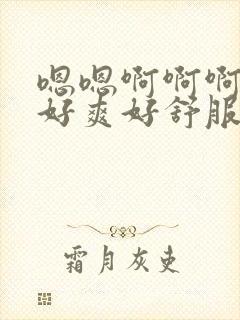 嗯嗯啊啊啊
好爽好舒服
霜月灰吏